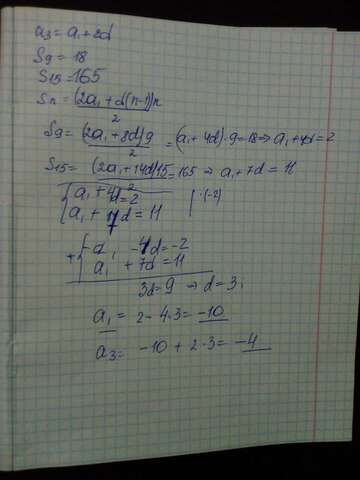 a₃ = a₁ + 2d
S₉ = 18
S₁₅ = 165
Sn = (2a₁ + d(n-1))n / 2
S₉ = (2a₁ + 8d)9 / 2 = (a₁ + 4d)·9 = 18 ⇒ a₁ + 4d = 2
S₁₅ = (2a₁ + 14d)15 / 2 = 165 ⇒ a₁ + 7d = 11
{ a₁ + 4d = 2 | ·(-2)
a₁ + 7d = 11
+ { -a₁ - 4d = -2
a₁ + 7d = 11
3d = 9 ⇒ d = 3;
a₁ = 2 - 4·3 = -10
a₃ = -10 + 2·3 = -4